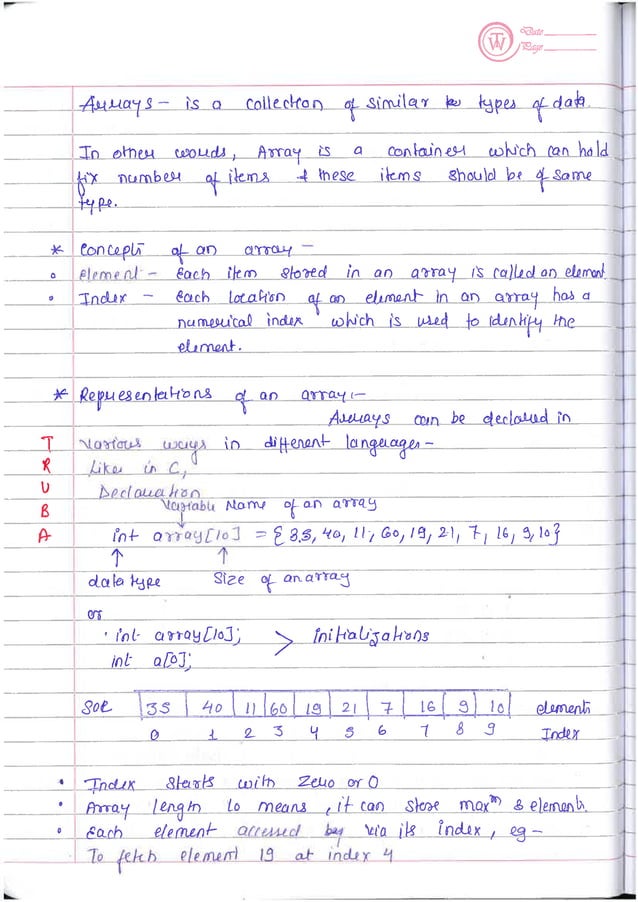 TW
Date
Page
Arrays - is a collection of similar types of data.
In other words, Array is a container which can hold
fix number of items & these items should be of same
type.
* Concepts of an array -
◦ element - Each item stored in an array is called an element.
• Index - Each location of an element in an array has a
numerical index which is used to identify the
element.
* Representations of an array :-
Arrays can be declared in
T Various ways in different languages -
R Like in C,
U Declaration
Variable Name of an array
B
A int array[10] = {35, 40, 11, 60, 19, 21, 7, 16, 9, 10}
↑ ↑
data type Size of an array
or
int array[10]; > initializations
int a[0];
Sol 35 40 11 60 19 21 7 16 9 10 elements
0 1 2 3 4 5 6 7 8 9 Index
• Index starts with Zero or 0
• Array length 10 means, it can store maxm 8 elements.
• Each element accessed by via its index, eg -
To fetch element 19 at index 4